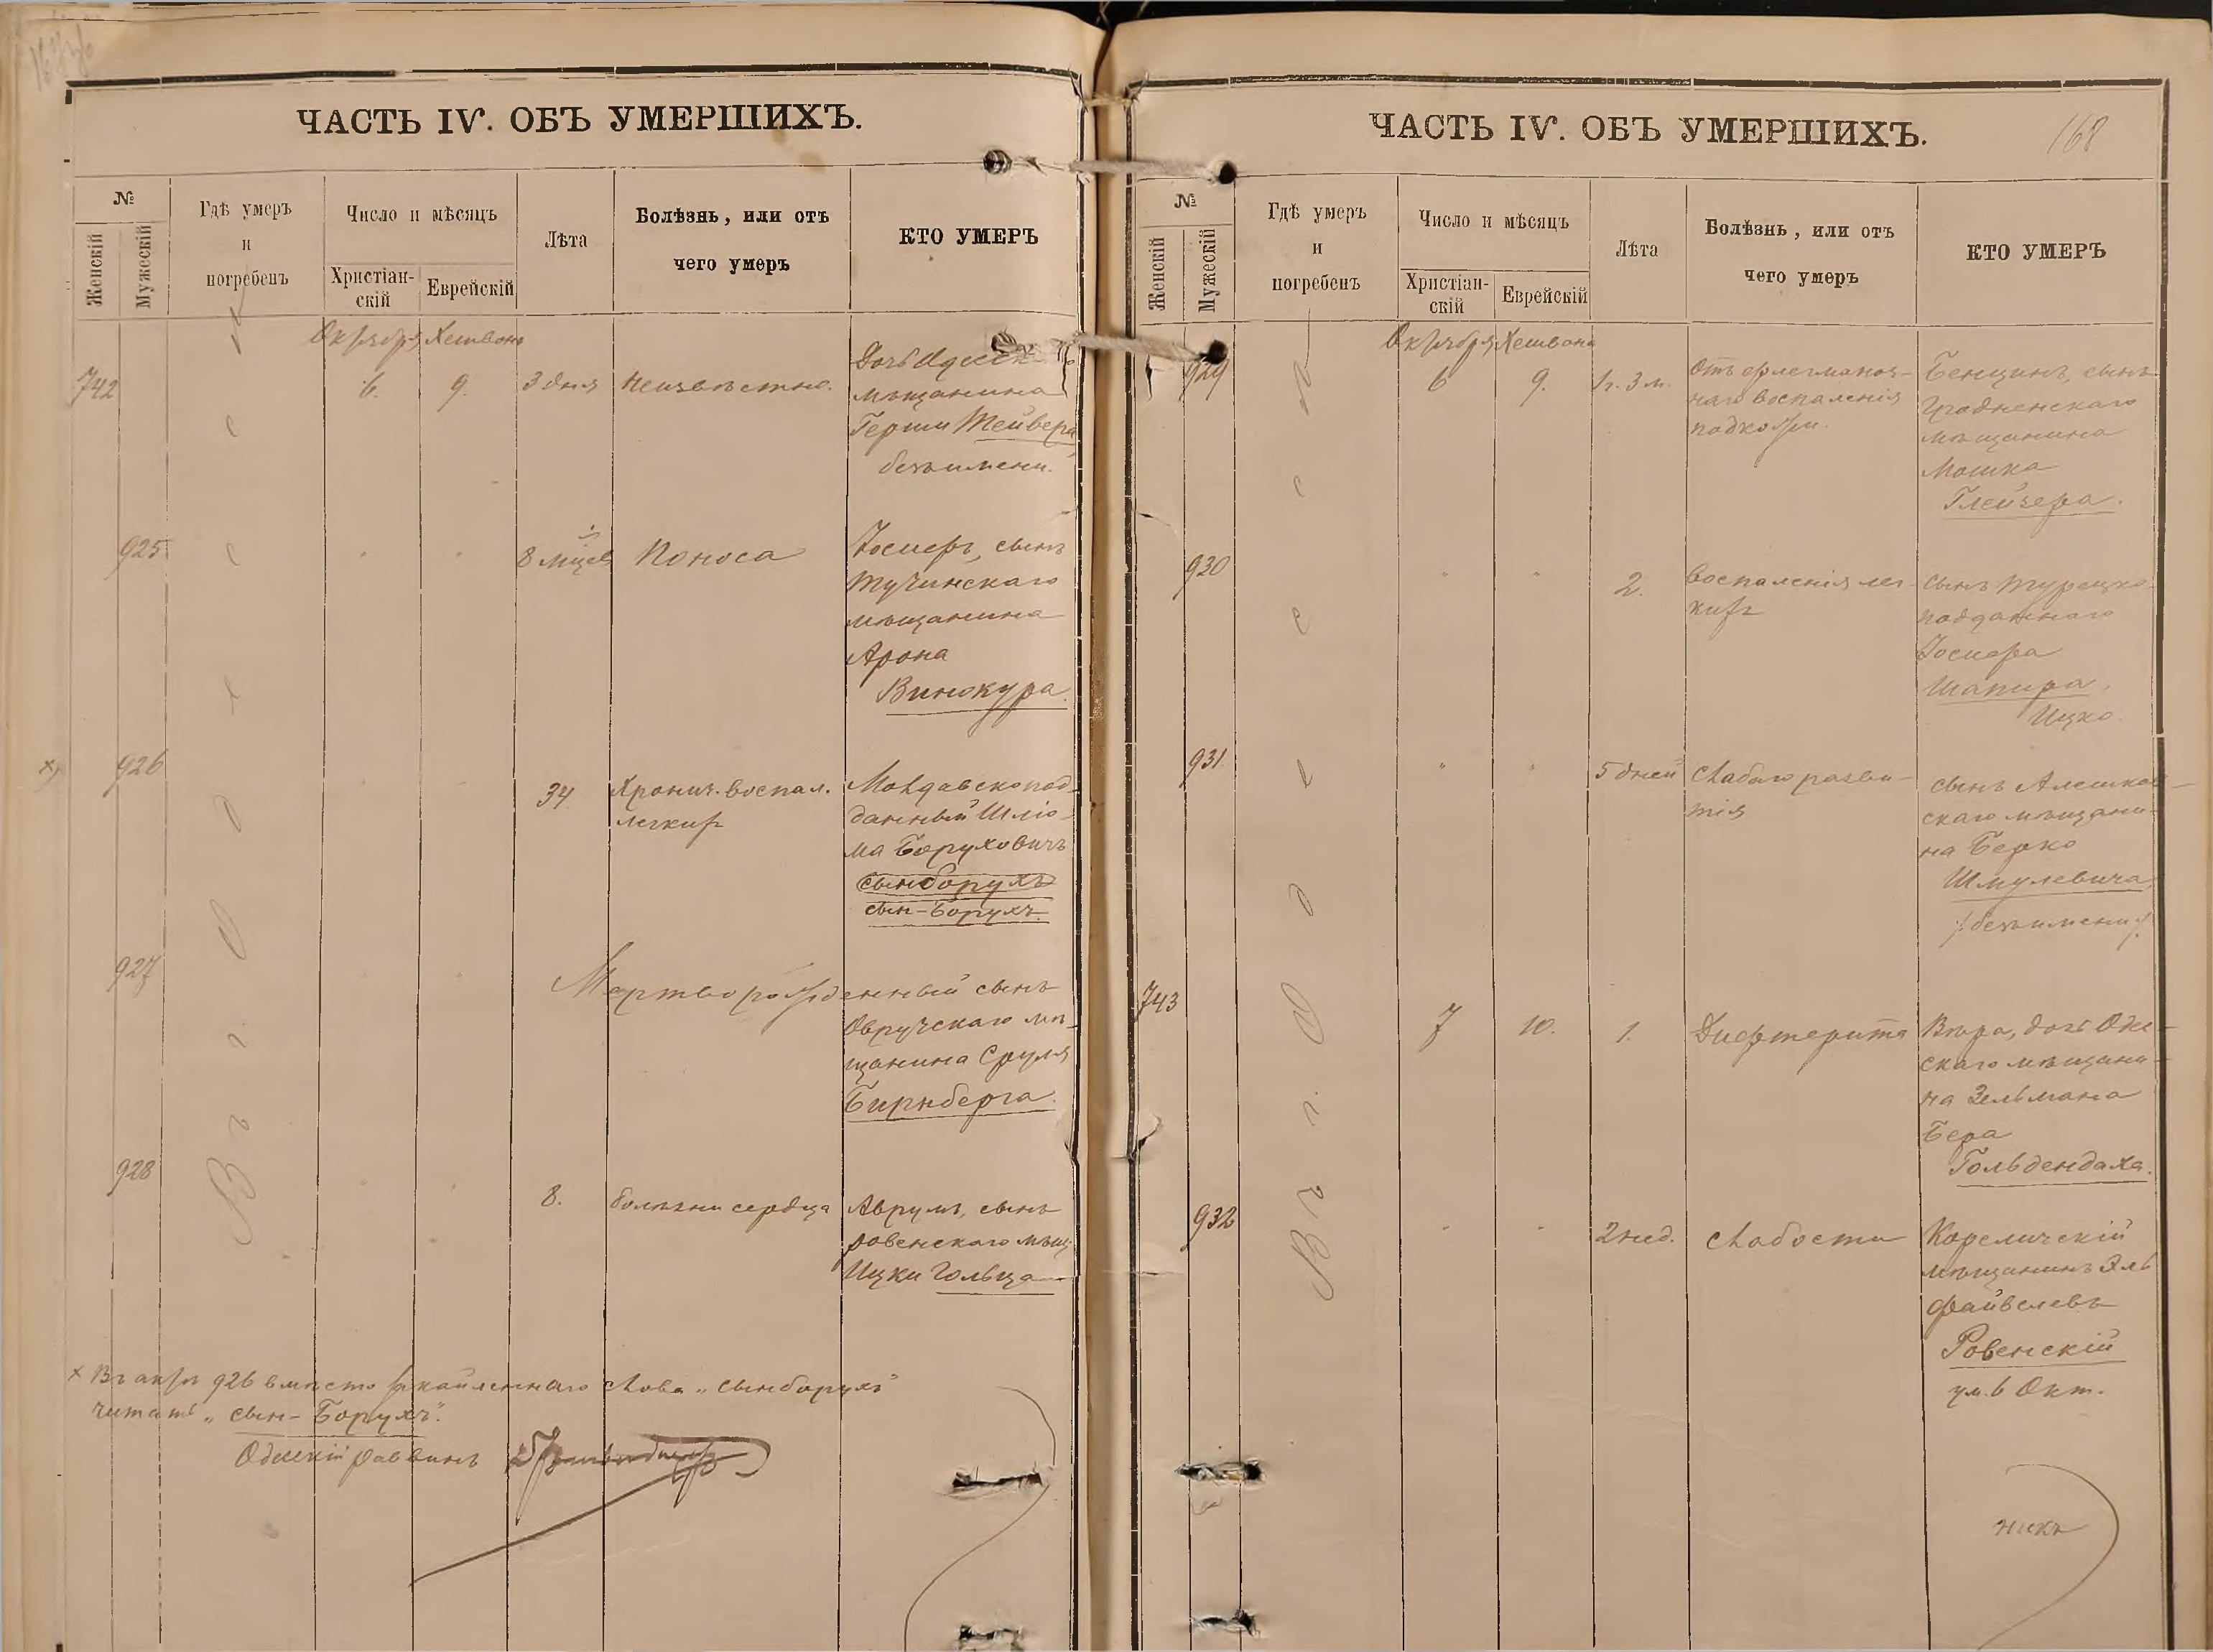 ЧАСТЬ IV. ОБЪ УМЕРШИХЪ.
№
Женскій
Мужескій
Гдѣ умеръ
и
погребенъ
Число и мѣсяцъ
Христіан-
скій
Еврейскій
Лѣта
Болѣзнь, или отъ
чего умеръ
КТО УМЕРЪ
Въ г. Одессѣ
Октября Хешвонъ
742
6. 9. 3 дня неизвѣстно.
Дочь Одесск
мѣщанина
Герши Тейвера,
безъ имени.
925
" " 8 мцев Поноса
Іосифъ, сынъ
Тучинскаго
мѣщанина
Арона
Винокура.
х) 926
" " 34 Хронич. воспал.
легкихъ
Молдавскопод-
данный Шлio-
ма Боруховичъ
сынборухъ
сын-Борухъ.
927
" " Мертворожденный сынъ
Овручскаго мѣ-
щанина Сруля
Бирнберга.
928
" " 8. болѣзни сердца
Аврумъ, сынъ
ровенскаго мѣщ.
Ицки Гольца
х Въ актѣ 926 вмѣсто слова „сынборухъ"
читать „сын-Борухъ".
Одесскій раввинъ
ЧАСТЬ IV. ОБЪ УМЕРШИХЪ.
168
№
Женскій
Мужескій
Гдѣ умеръ
и
погребенъ
Число и мѣсяцъ
Христіан-
скій
Еврейскій
Лѣта
Болѣзнь, или отъ
чего умеръ
КТО УМЕРЪ
Въ г. Одессѣ
Октября Хешвона
929
6 9. 1 г. 3 м.
Отъ флегманоз-
наго воспаленія
подкожи.
Бенціинъ, сынъ
Гродненскаго
мѣщанина
Мошка
Глейзера.
930
" " 2. Воспаленія лег-
кихъ
сынъ турецко-
подданнаго
Іосифа
Шапира,
Ицко.
931
" " 5 дней Слабаго разви-
тія
сынъ Алешков-
скаго мѣщани-
на Берко
Шмулевича,
/безъ имени/.
743
7 10. 1. Дифтерита
Вѣра, дочь Одес-
скаго мѣщани-
на Зельмана
Бера
Гольдендаха.
932
" " 2 нед. Слабости
Кореличскій
мѣщанинъ Эль
Файвелевъ
Ровенскій
ум. 6 Окт.